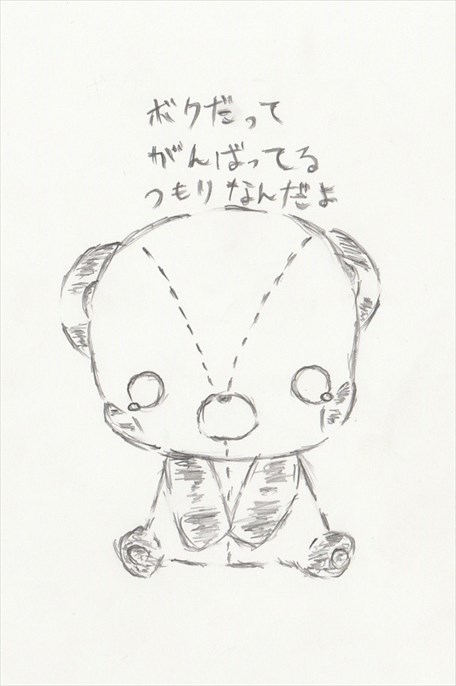 ボクだって
がんばってる
つもりなんだよ